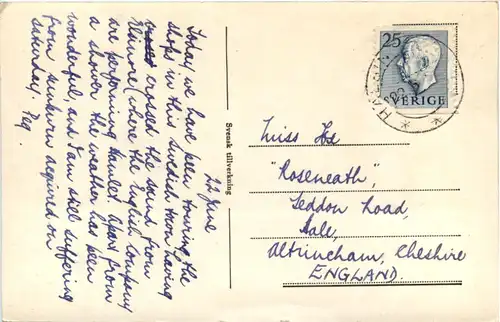 22 June
Today we have been touring the
shops in this Swedish town having
crossed the sound from
Elsinore (where the English Company
are performing Hamlet. Apart from
a shower the weather has been
wonderful, and I am still suffering
from sunburn acquired on
Saturday. Peg.
Svensk tillverkning
25
SVERIGE
Miss
"Roseneath",
Seddon Road,
Hale,
Altrincham, Cheshire
ENGLAND.